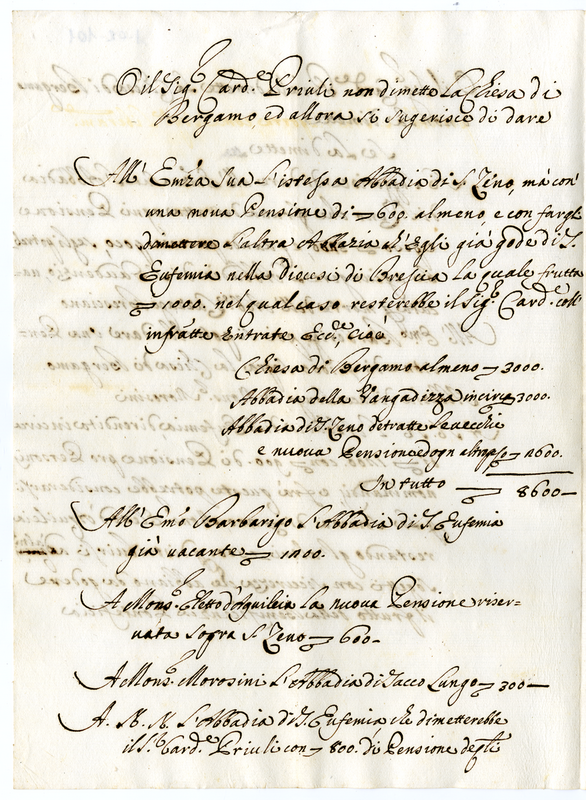 O il Sig.r Card.e Priuli non dimette La Chiesa di
Bergamo, ed allora si sugerisce di dare
All' Em̃za Sua l'istessa Abbadia di S. Zeno, mà con'
una nova Pensione di 600. almeno e con fargli
dimettere l'altra Abbazia ch'Egli già gode di S.
Eufemia nella Diocesi di Brescia la quale frutta
1000. nel qual caso resterebbe il Sig.r Card.e coll'
infratte Entrate Ecc.e cioè
Chiesa di Bergamo almeno 3000.
Abbadia della Vangadizza incirca 3000.
Abbadia di S. Zeno detratte le vecchie
e nuova Pensione ed ogn altro peso 2600.
In tutto 8600
All' Em̃o Barbarigo l'Abbadia di S. Eufemia
già vacante 1200.
A Mons.r Eletto d'Aquileia la nuova Pensione riser-
vata sopra S. Zeno 600
A Mons.r Morosini l'Abbadia di Sacco Lungo 300
A. N. N. l'Abbadia di S. Eufemia che dimetterebbe
il S.r Card.e Priuli con 800. di Pensione degli